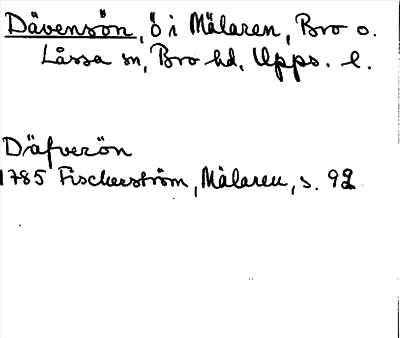 Dävensön, ö i Mälaren, Bro o.
Låssa sn, Bro hd, Upps. l.
Däfverön
1785 Fischerström, Mälaren, s. 92